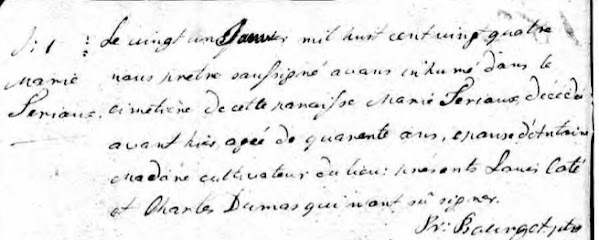 S: 1:
Marie
Seriaux.
Le vingt un Janvier mil huit cent vingt quatre
nous pretre soussigné avons inhumé dans le
cimetiere de cette paroisse Marie Seriaux, décédée
avant hier, agée de quarente ans, epouse d'Antoine
Madore cultivateur du lieu: présents Louis Coté
et Charles Dumas qui n'ont sû signer.
Fr: Bourget ptre